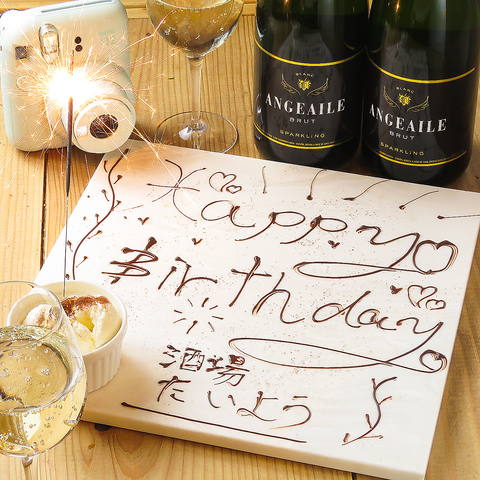 Happy
Birthday
酒場
たいよう
BLANC
ANGEAILE
BRUT
SPARKLING
BLANC
ANGEAILE
BRUT
SPARKLING